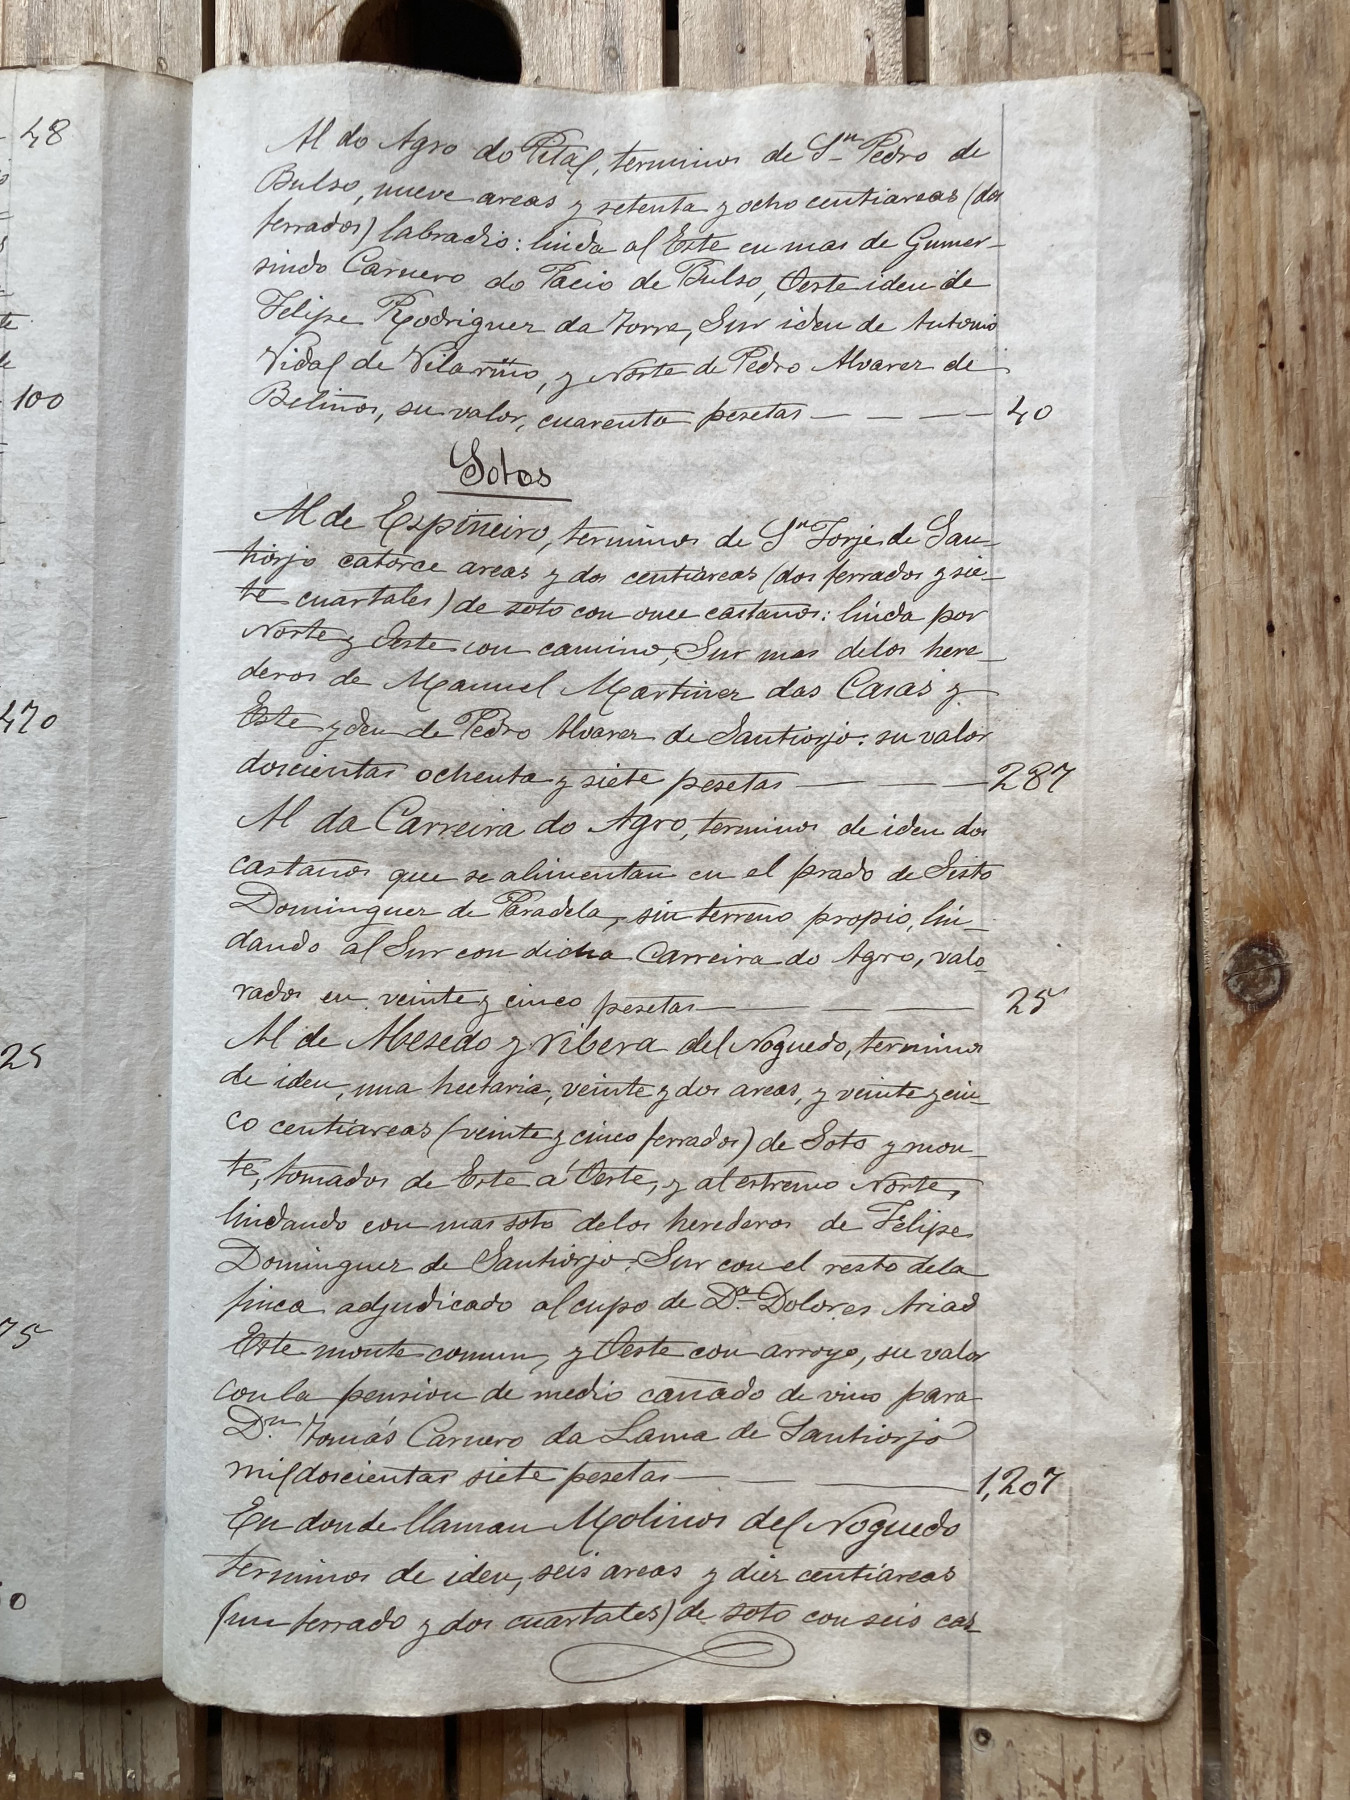 48
100
470
25
75
Al do Agro do Pital, terminos de Sn Pedro de
Bulso, nueve areas y setenta y ocho centiareas (dos
ferrados) labradio: linda al Este en mas de Gumer-
sindo Carnero do Pacio de Bulso, Oeste iden de
Felipe Rodriguez da torre, Sur iden de Antonio
Vidal de Vilariño, y Norte de Pedro Alvarez de
Beliños, su valor, cuarenta pesetas — — — — 40
Sotos
Al de Espiñeiro, terminos de Sn Jorje de San-
tiorjo catorce areas y dos centiareas (dos ferrados y sie-
te cuartales) de soto con once castaños: linda por
Norte y Oeste con camino, Sur mas delos here-
deros de Manuel Martinez das Casas y
Este yden de Pedro Alvarez de Santiorjo: su valor
doscientas ochenta y siete pesetas — — — 287
Al da Carreira do Agro, terminos de iden dos
castaños que se alimentan en el prado de Sisto
Dominguez de Paradela, sin terreno propio, lin-
dando al Sur con dicha Carreira do Agro, valo-
rados en veinte y cinco pesetas — — — 25
Al de Abesedo y ribera del Noguedo, terminos
de iden, una hectaria, veinte y dos areas, y veinte y cin-
co centiareas (veinte y cinco ferrados) de Soto y mon-
te, tomados de Este á Oeste, y al estremo Norte,
lindando con mas soto delos herederos de Felipe
Dominguez de Santiorjo, Sur con el resto dela
finca adjudicado al cupo de Dª Dolores Arias
Este monte comun, y Oeste con arroyo, su valor
con la pension de medio cañado de vino para
Dn. Tomás Carnero da Lama de Santiorjo
mil doscientas siete pesetas — — — 1,207
En donde llaman Molinos del Noguedo
terminos de iden, seis areas y diez centiareas
(un ferrado y dos cuartales) de soto con seis cas-